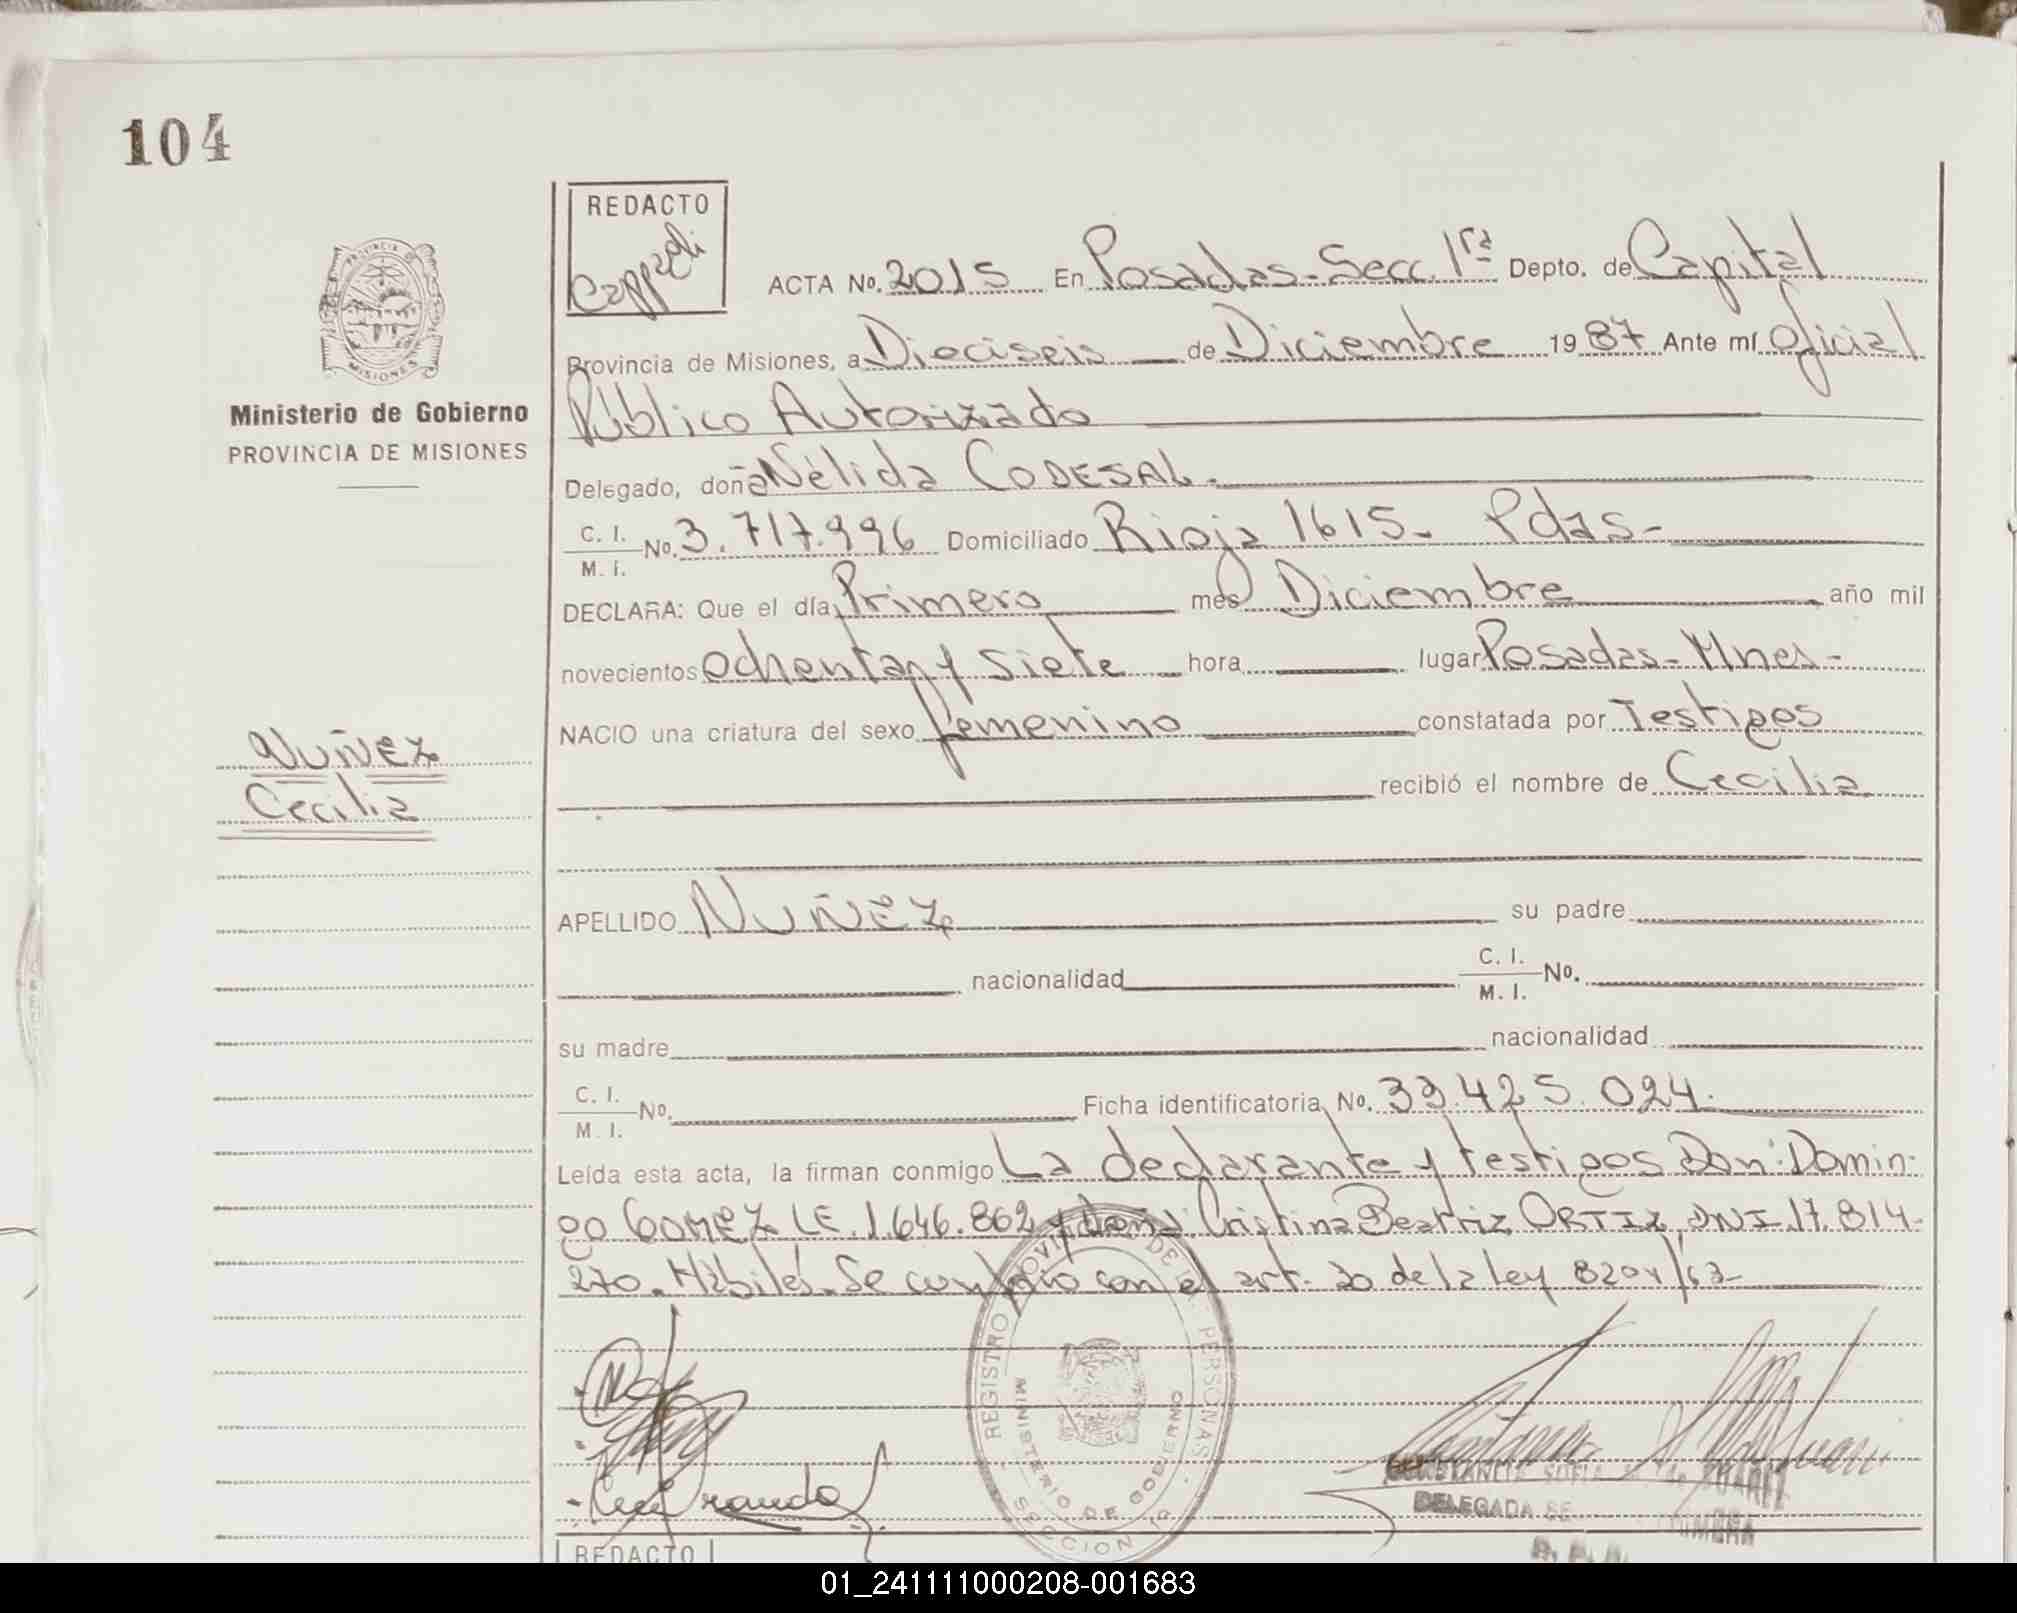 104
REDACTO
Cappeli
ACTA No. 2015 En Posadas-Secc. 1ra Depto. de Capital
Provincia de Misiones, a Dieciseis de Diciembre 1987 Ante mí Oficial
Público Autorizado
Ministerio de Gobierno
PROVINCIA DE MISIONES
Delegado, doña Nélida CODESAL.
C. I.
M. I. No. 3.717.996 Domiciliado Rioja 1615- Pdas-
DECLARA: Que el día Primero mes Diciembre año mil
novecientos ochenta y siete hora lugar Posadas-Mnes-
NACIO una criatura del sexo femenino constatada por Testigos
recibió el nombre de Cecilia
NUÑEZ
Cecilia
APELLIDO NUÑEZ su padre
nacionalidad C. I.
M. I. No.
su madre nacionalidad
C. I.
M. I. No. Ficha identificatoria No. 33.425.024.
Leída esta acta, la firman conmigo La declarante y testigos Don: Domin-
go GOMEZ LE.1.646.862 y doña: Cristina Beatriz ORTIZ DNI.17.814-
270. Hábiles. Se con con el art. 20 de la ley 8204/63-
REGISTRO PROVINCIAL DE LAS PERSONAS
MINISTERIO DE GOBIERNO
SECCION 1a
SOFIA de SUAREZ
DELEGADA SE PRIMERA
REDACTO
01_241111000208-001683